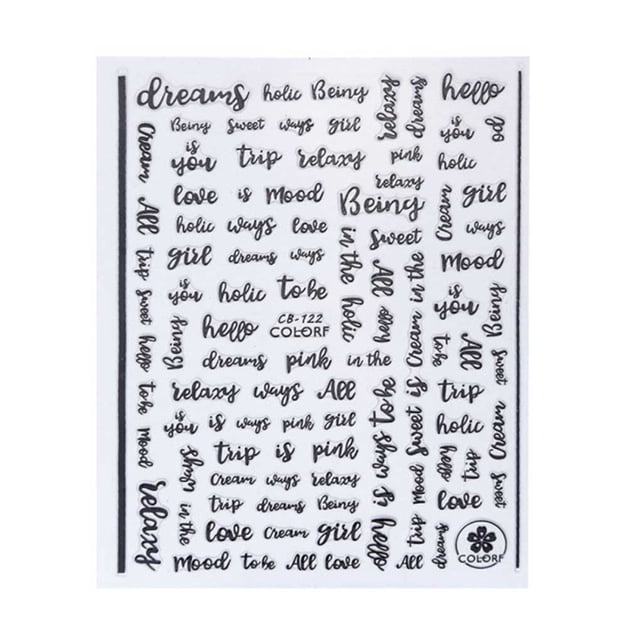 dreams holic Being relaxy dreams hello
Being sweet ways girl is you od
Cream is you trip relaxy pink holic
love is Mood relaxy Being Cream girl
All holic ways love in the holic Sweet ways
trip girl dreams ways All Cream in the Mood
sweet is you holic to be hello is you Being
Being hello CB-122
COLORF
hello dreams pink in the to be All sweet
to be relaxy ways All to be trip
Mood is you is ways pink girl is ways Sweet is holic Cream
trip is pink Mood hello trip
ways in the Cream ways relaxy sweet
relaxy trip dreams Being love
love Cream girl hello trip dreams
Mood to be All love All
COLORF